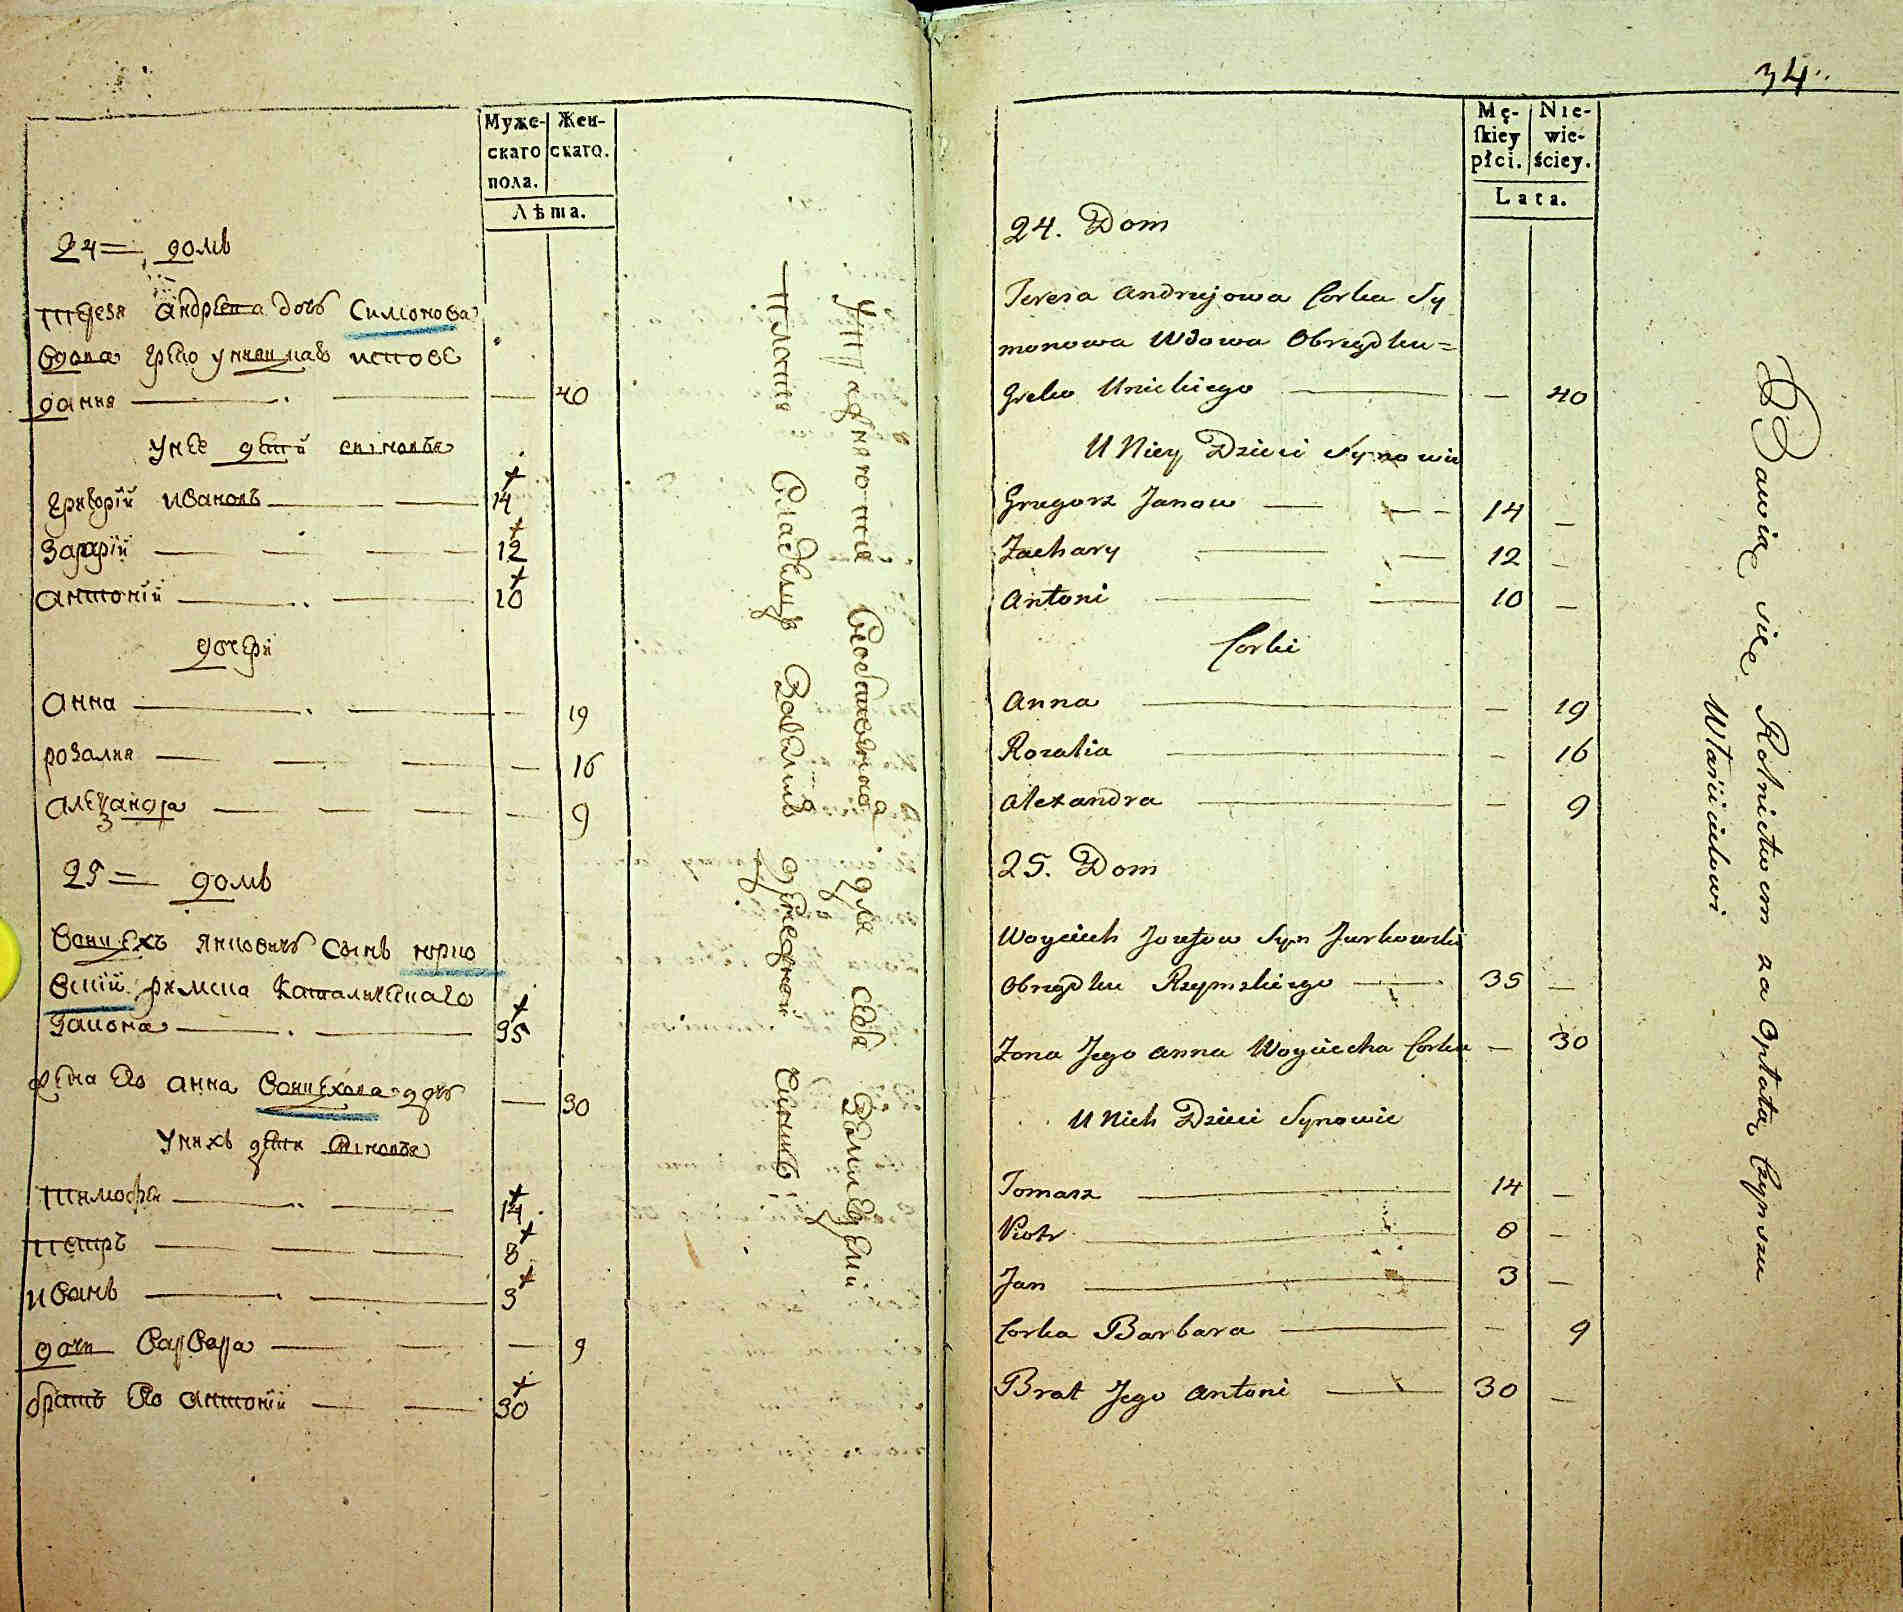 Муже-
скаго
пола.
Жен-
скаго.
Лѣта.
24 = домъ
Терезя Андреева дочь Симонова
вдова греко унитскаго испове
дания 40
У нее дети сыновья
Григорій Ивановъ 14
Захарій 12
Антоній 10
дочери
Анна 19
Розалия 16
Александра 9
25 = домъ
Войцехъ сынъ Юрко
вскій римско католическаго
закона 35
жена его Анна Войцехова дочь 30
У нихъ дети сыновья
Тимофей 14
Петръ 8
Иванъ 3
дочь Варвара 9
братъ его Антоній 30
34
Mę-
skiey
płci.
Nie-
wie-
ściey.
Lata.
24. Dom
Teresa Andrzejowa Corka Sy
monowa Wdowa Obrządku =
Greko Unickiego 40
U Niey Dzieci Synowie
Grzegorz Janow 14
Zachary 12
Antoni 10
Corki
Anna 19
Rozalia 16
Alexandra 9
25. Dom
Woyciech Jozefow Syn Jurkowski
Obrządku Rzymskiego 35
Zona Jego Anna Woyciecha Corka 30
U Nich Dzieci Synowie
Tomasz 14
Piotr 8
Jan 3
Corka Barbara 9
Brat Jego Antoni 30
Bawią się Rolnictwem za Opłatą Czynszu
Właścicielowi